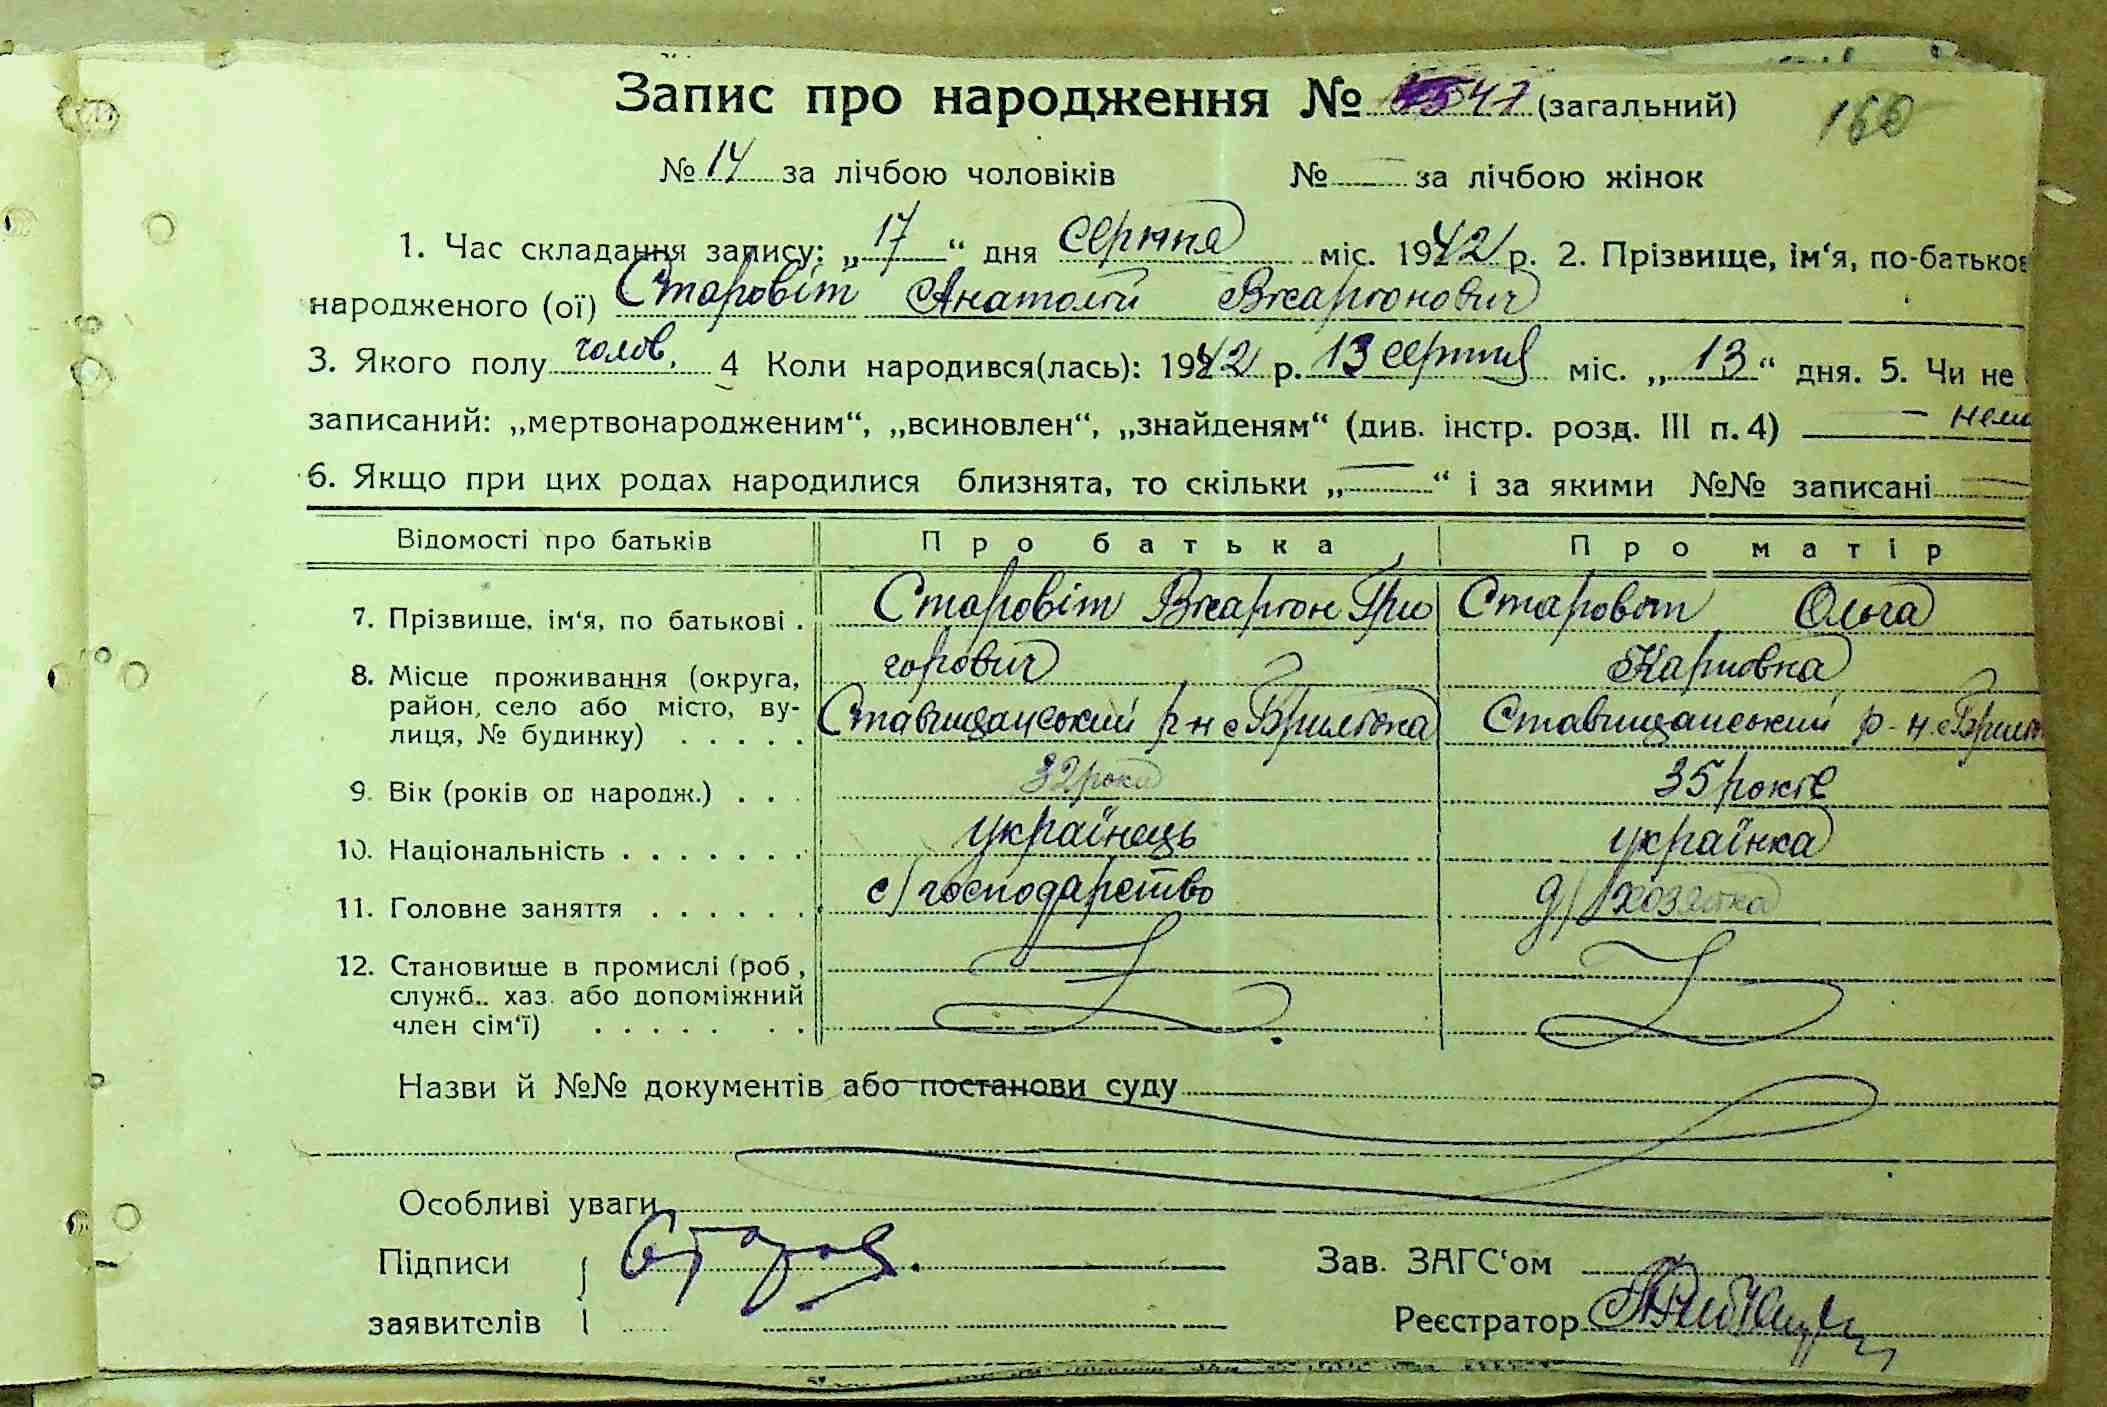 Запис про народження № 47 (загальний)
160
№ 14 за лічбою чоловіків № — за лічбою жінок
1. Час складання запису: „17“ дня серпня міс. 1942 р. 2. Прізвище, ім‘я, по-батькові
народженого (ої) Старовіт Анатолій
3. Якого полу чолов. 4 Коли народився(лась): 1942 р. 13 серпня міс. „13“ дня. 5. Чи не
записаний: „мертвонародженим“, „всиновлен“, „знайденям“ (див. інстр. розд. III п. 4) — нема
6. Якщо при цих родах народилися близнята, то скільки „—“ і за якими №№ записані —
Відомості про батьків Про батька Про матір
7. Прізвище, ім‘я, по батькові . Старовіт Гри Старовіт Ольга
горович Карповна
8. Місце проживання (округа,
район, село або місто, ву-
лиця, № будинку) . . . . . Ставищанський р-н с Брилівка Ставищанський р-н. с Брилів
9. Вік (років од народж.) . . . 32 роки 35 років
10. Національність . . . . . . . українець українка
11. Головне заняття . . . . . . . с/господарство д/хозяйка
12. Становище в промислі (роб.,
служб.. хаз. або допоміжний
член сім‘ї) . . . . . . .
Назви й №№ документів або постанови суду
Особливі уваги
Підписи Старов. Зав. ЗАГС‘ом
заявителів Реєстратор